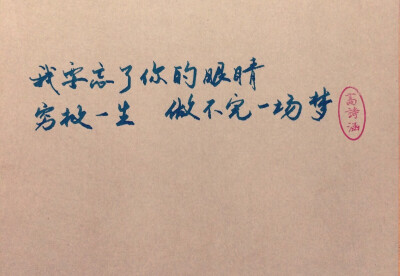 我要忘了你的眼睛
穷极一生 做不完一场梦
高诗涵